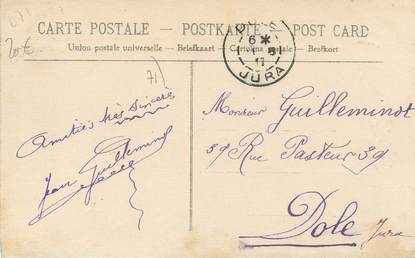 CARTE POSTALE — POSTKARTE — POST CARD
Union postale universelle — Briefkaart — Cartolina postale — Brefkort
JURA
71
Amitiés très sincères
Jean Guilleminot
Monsieur Guilleminot
39 Rue Pasteur 39
Dole Jura